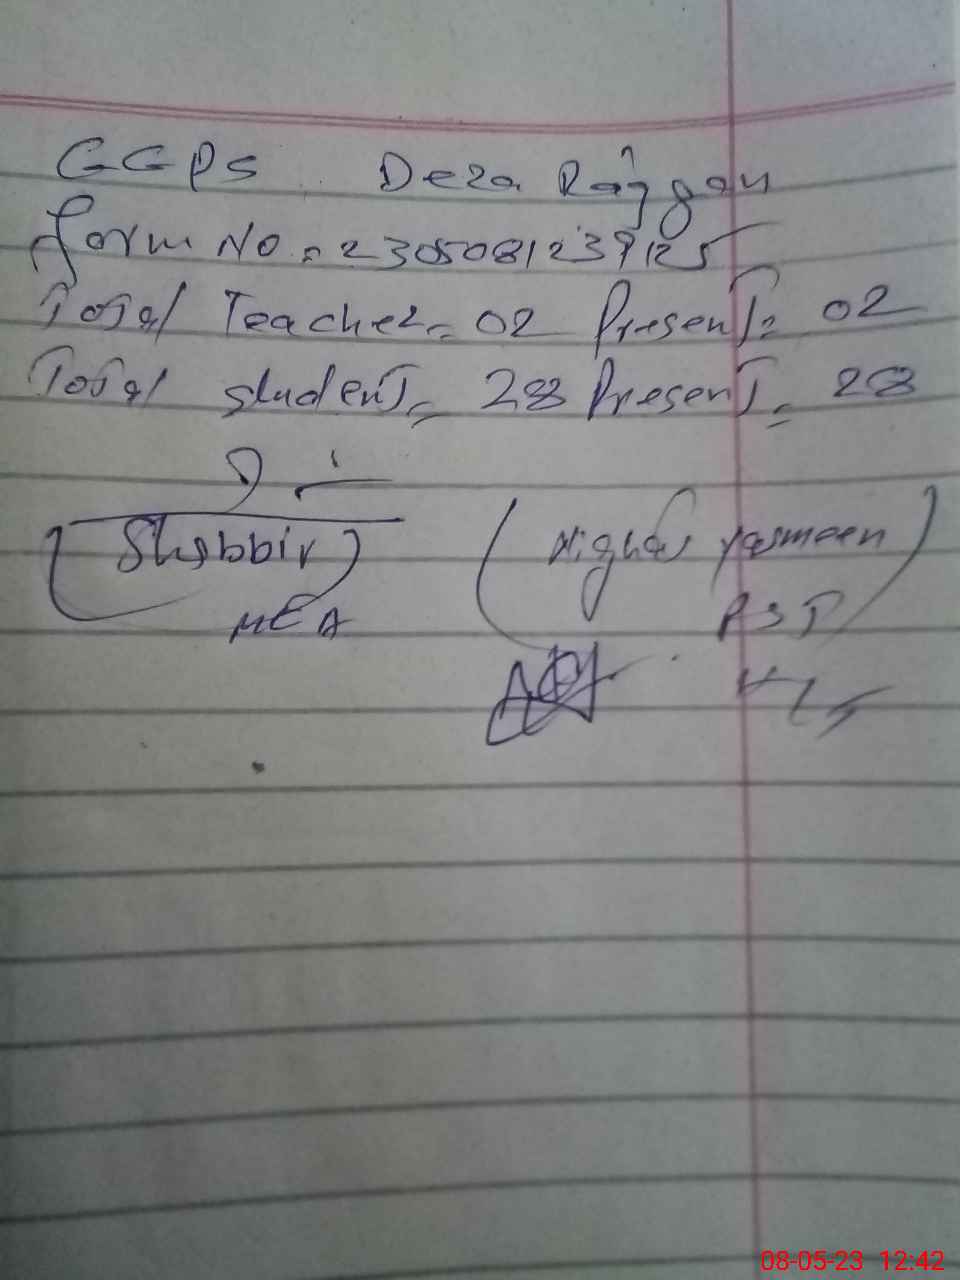 GGPS Dera Rajgan
Form No. = 2305081239125
Total Teacher = 02 Present = 02
Total student = 28 Present = 28
(Shabbir)
MEA
(Nighat Yasmeen)
PST
08-05-23 12:42